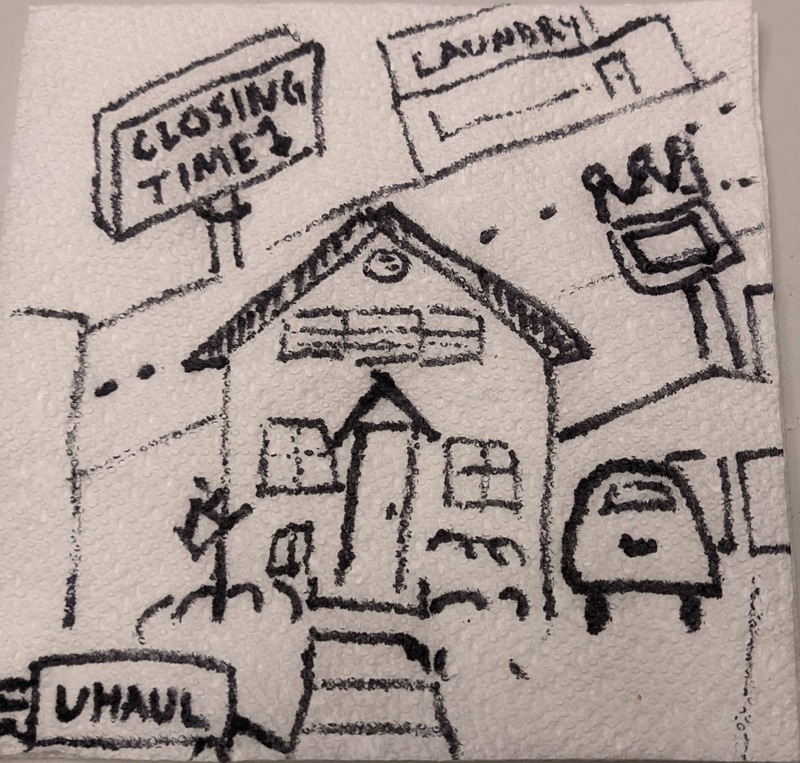 CLOSING
TIME?
LAUNDRY
UHAUL